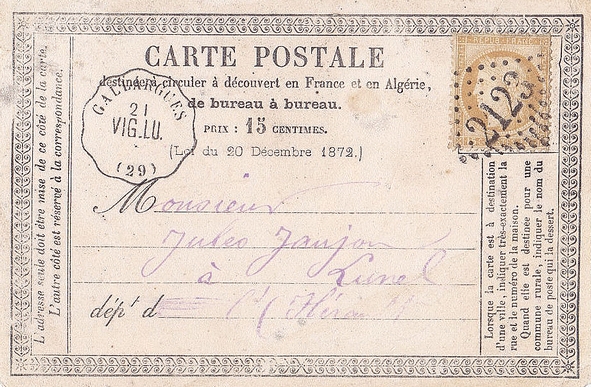 CARTE POSTALE
destinée à circuler à découvert en France et en Algérie,
de bureau à bureau.
PRIX : 15 CENTIMES.
(Loi du 20 Décembre 1872.)
GALLARGUES
21
VIG.LU.
(29)
REPUB. FRANC.
2123
Monsieur
Jules Jaujon
à Lunel
dép.t d
(Hérault)
L'adresse seule doit être mise de ce côté de la carte.
L'autre côté est réservé à la correspondance.
Lorsque la carte est à destination
d'une ville, indiquer très-exactement la
rue et le numéro de la maison.
Quand elle est destinée pour une
commune rurale, indiquer le nom du
bureau de poste qui la dessert.